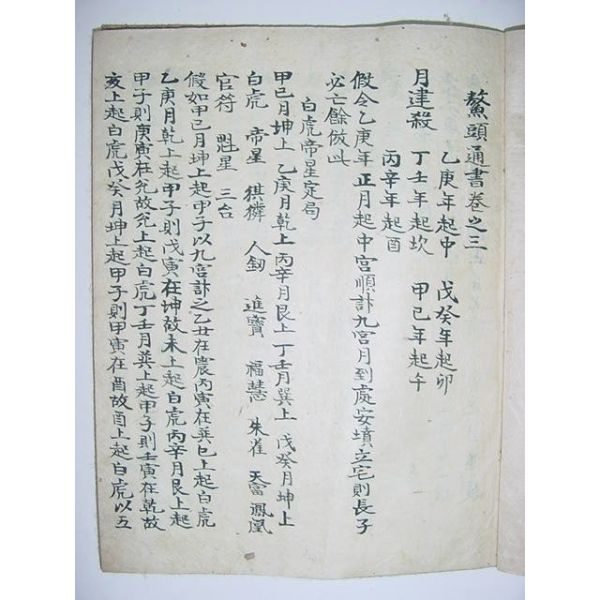 鰲頭通書卷之三
乙庚年起中 戊癸年起卯
月建殺 丁壬年起坎 甲己年起午
丙辛年起酉
假令乙庚年正月起中宮順計九宮月到處安墳立宅則長子
必亡餘倣此
白虎帝星定局
甲己月坤上 乙庚月乾上 丙辛月艮上 丁壬月巽上 戊癸月坤上
白虎 帝星 猉獜 人釰 進寶 福慧 朱雀 天富 鳳凰
官符 魁星 三台
假如甲己月坤上起甲子以九宮計之乙丑在震丙寅在巽巳上起白虎
乙庚月乾上起甲子則戊寅在坤故未上起白虎丙辛月艮上起
甲子則庚寅在兌故兌上起白虎丁壬月巽上起甲子則壬寅在乾故
亥上起白虎戊癸月坤上起甲子則甲寅在酉故酉上起白虎以五